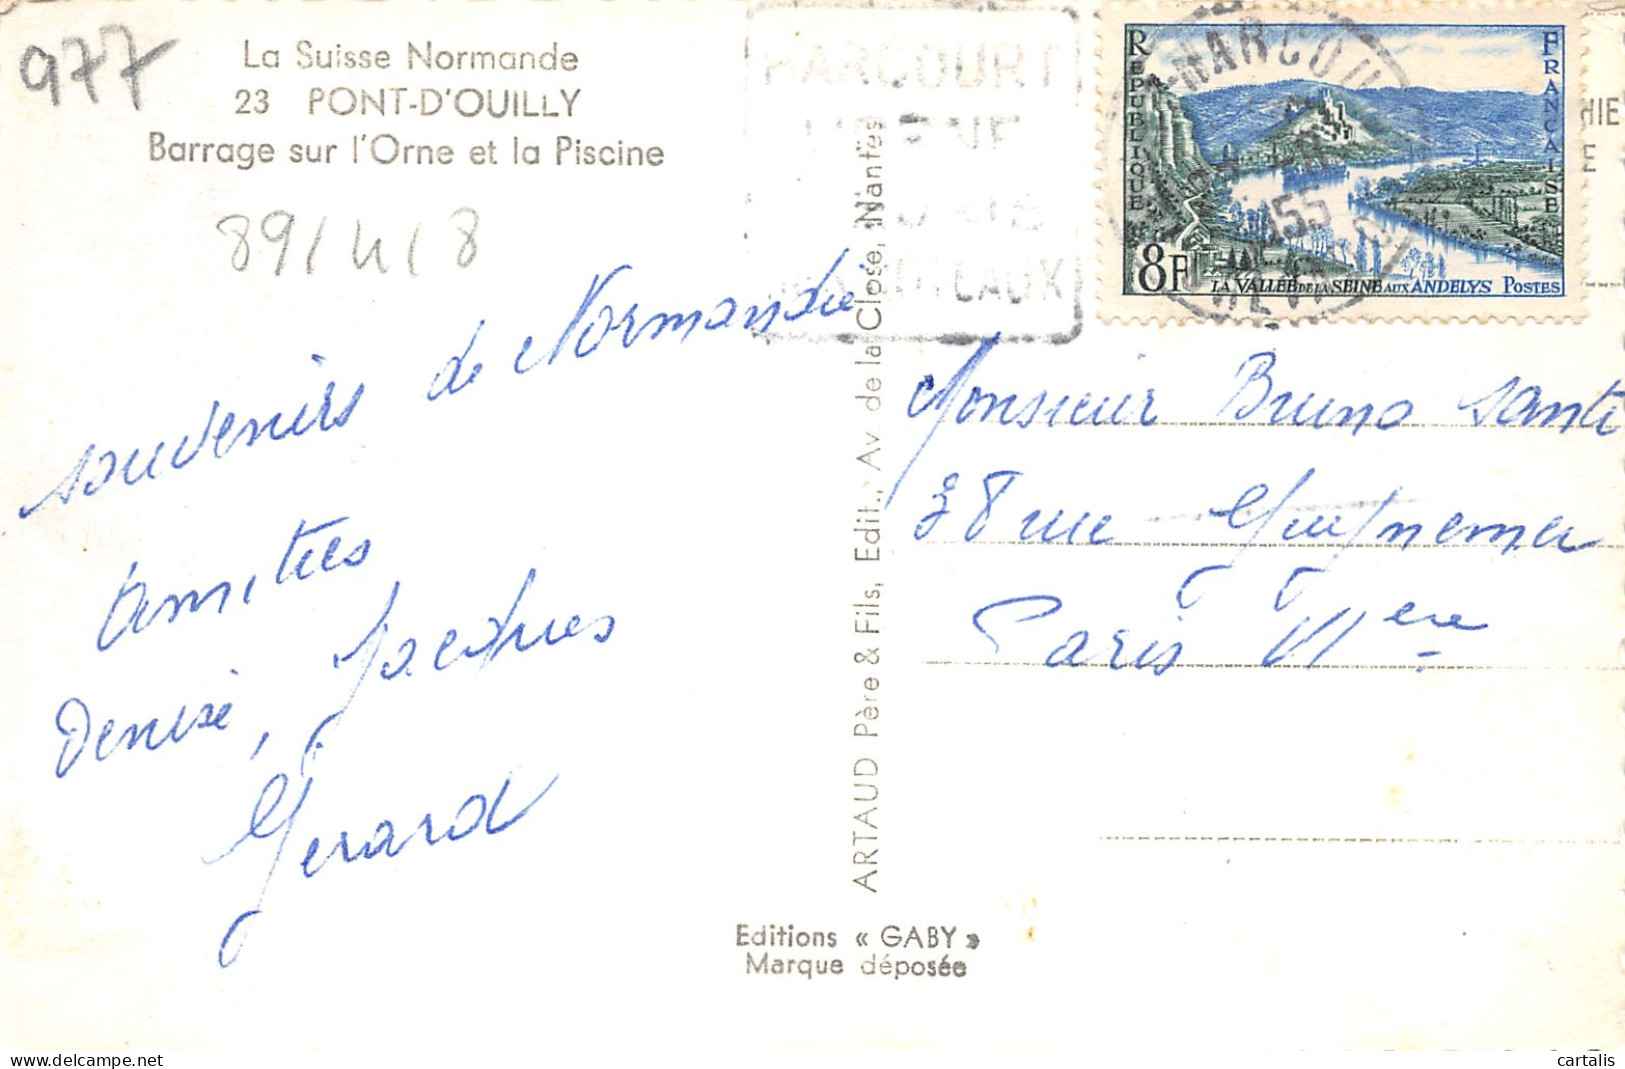 977
La Suisse Normande
23 PONT-D'OUILLY
Barrage sur l'Orne et la Piscine
89/4/8
souvenirs de Normandie
Amitiés
Denise, Jacques
Gérard
ARTAUD Père & Fils, Edit., Av de la Close, Nantes
Editions « GABY »
Marque déposée
HARCOURT
REPUBLIQUE
FRANCAISE
8F
LA VALLEE DE LA SEINE AUX ANDELYS POSTES
Monsieur Bruno Santi
38 rue Guynemer
Paris VIere
delcampe.net
cartalis